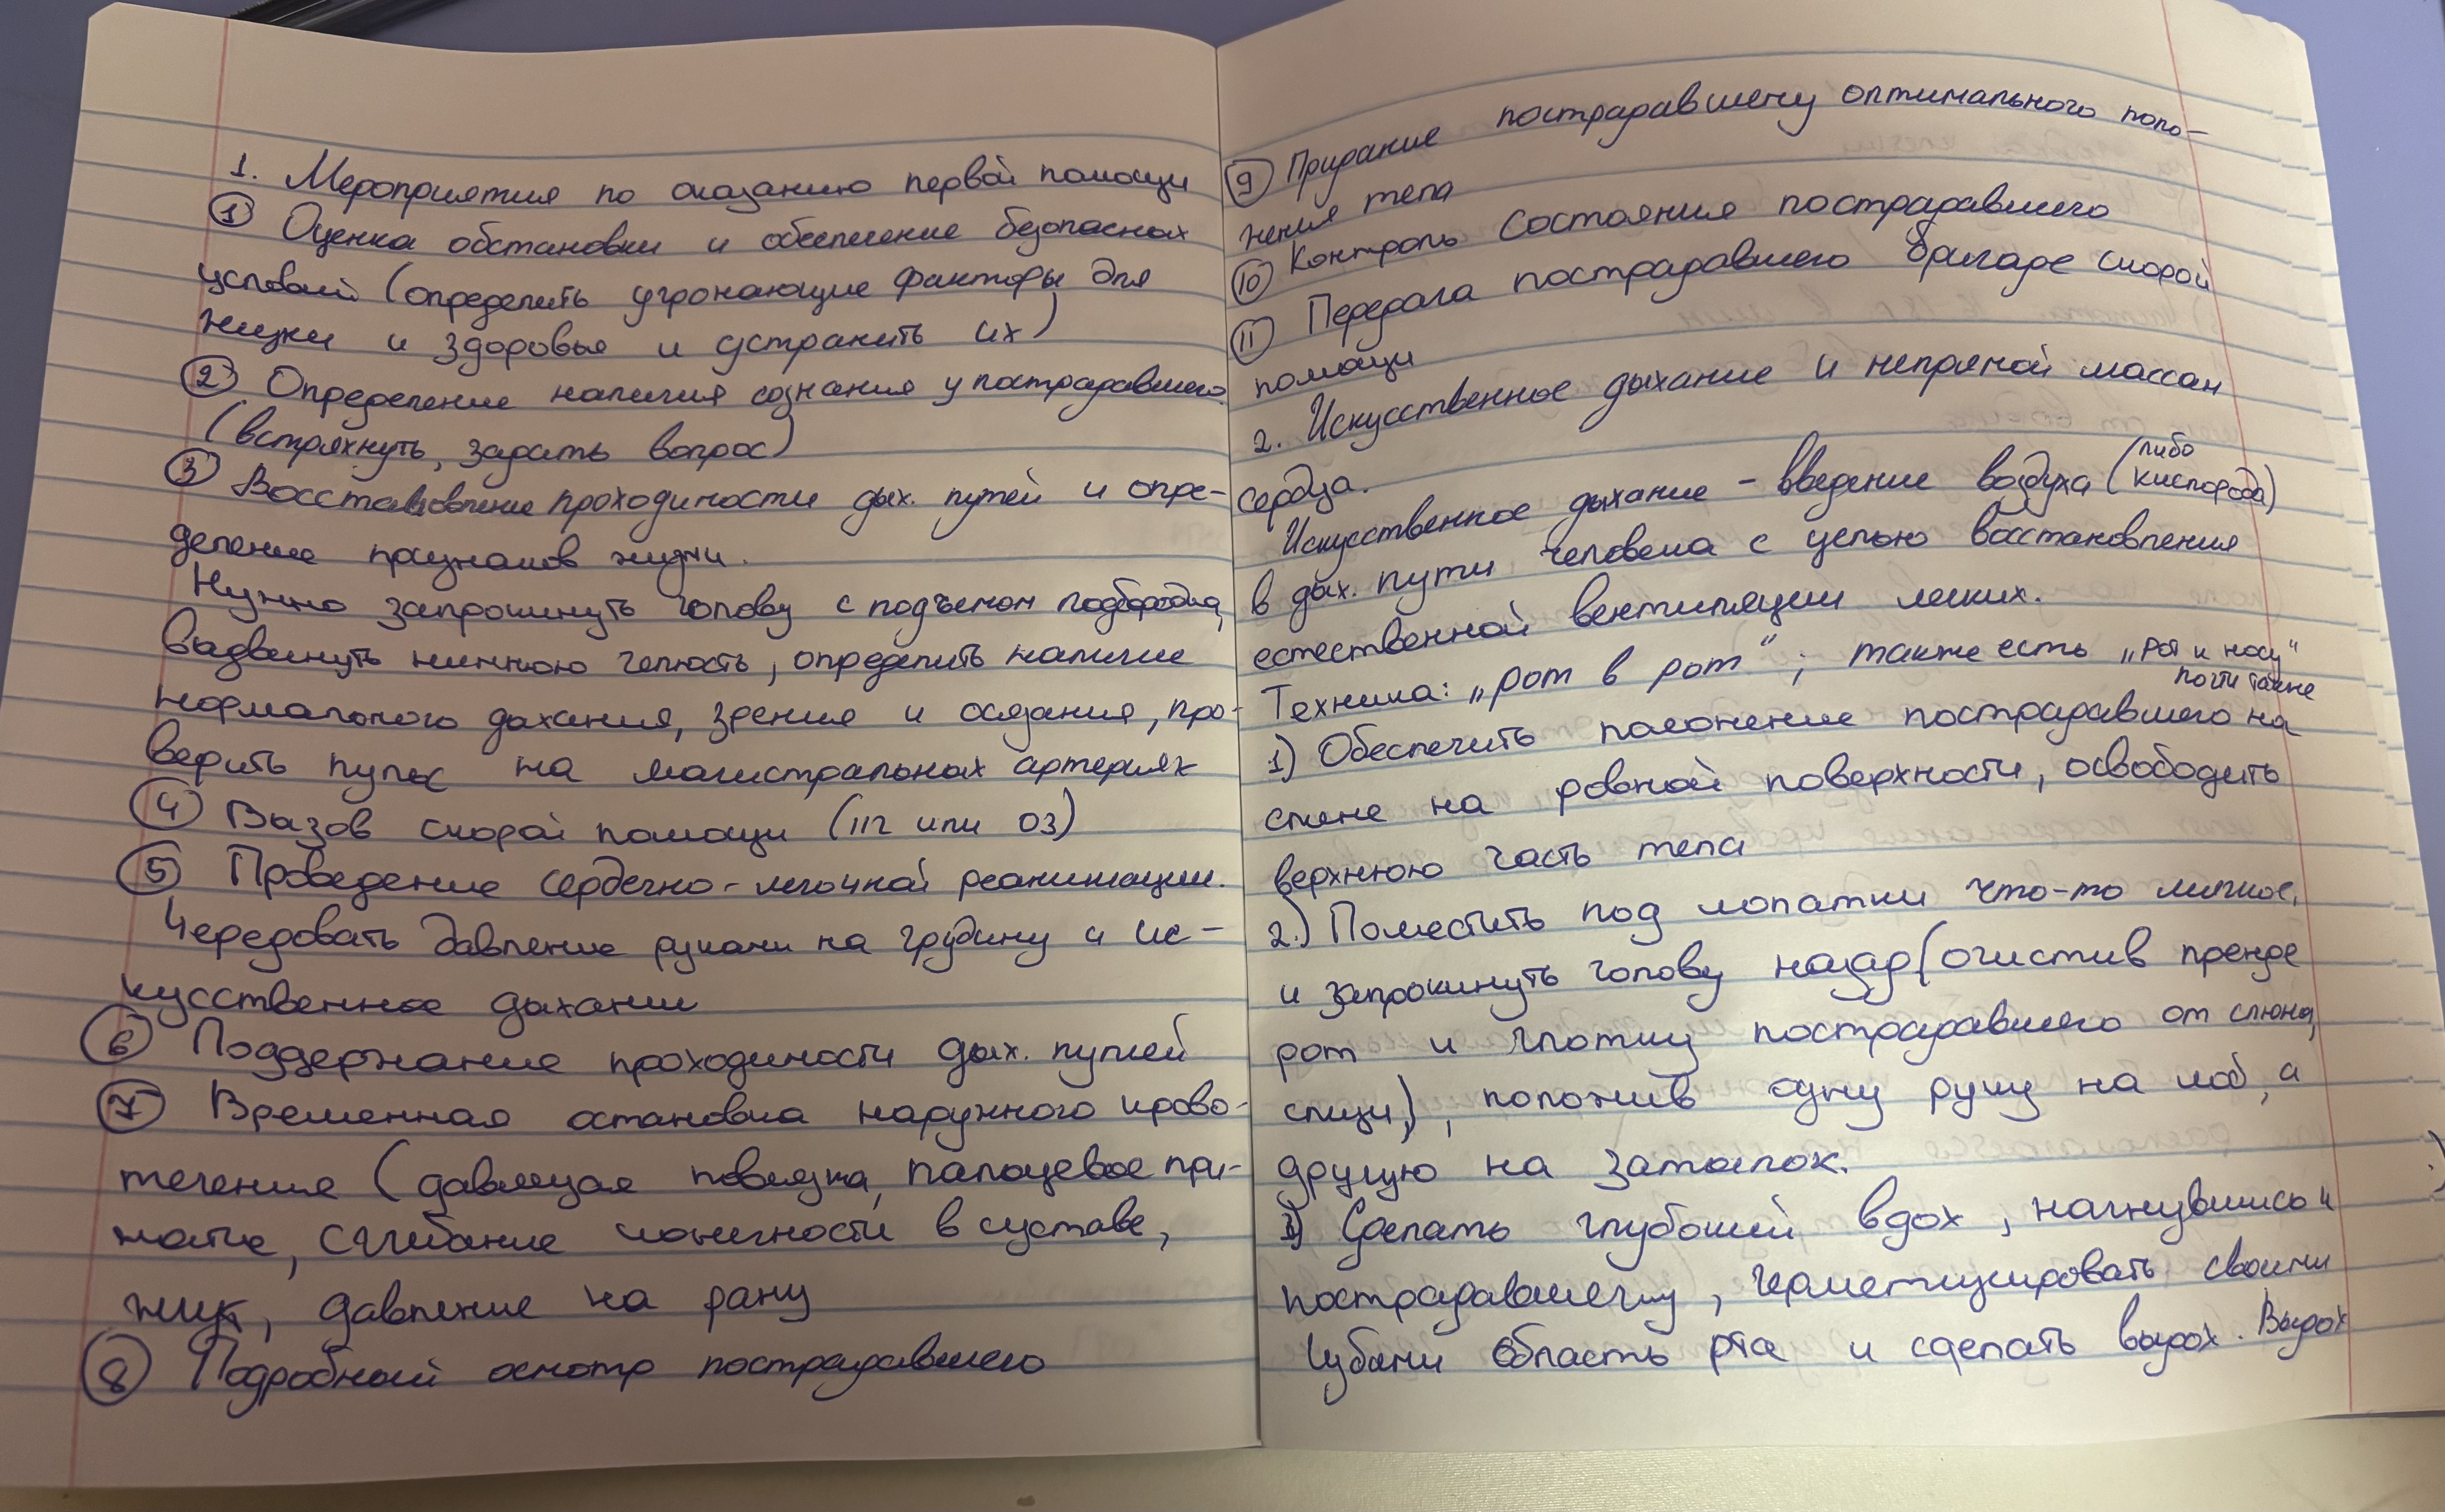 1. Мероприятия по оказанию первой помощи
① Оценка обстановки и обеспечение безопасных
условий (определить угрожающие факторы для
жизни и здоровья и устранить их)
② Определение наличия сознания у пострадавшего
(встряхнуть, задать вопрос)
③ Восстановление проходимости дых. путей и опре-
деление признаков жизни.
Нужно запрокинуть голову с подъемом подбородка,
выдвинуть нижнюю челюсть, определить наличие
нормального дыхания, зрения и осязания, про-
верить пульс на магистральных артериях
④ Вызов скорой помощи (112 или 03)
⑤ Проведение сердечно-легочной реанимации.
Чередовать давление руками на грудину и ис-
кусственное дыхании
⑥ Поддержание проходимости дых. путей
⑦ Временная остановка наружного крово-
течения (давящая повязка, пальцевое при-
жатие, сгибание конечности в суставе,
жгут, давление на рану
⑧ Подробный осмотр пострадавшего
⑨ Придание пострадавшему оптимального поло-
жения тела
⑩ Контроль состояния пострадавшего
⑪ Передача пострадавшего бригаде скорой
помощи
2. Искусственное дыхание и непрямой массаж
сердца.
Искусственное дыхание – введение воздуха (либо кислорода)
в дых. пути человека с целью восстановления
естественной вентиляции легких.
Техника: „рот в рот“; также есть „рот к носу“
почти также
1) Обеспечить положение пострадавшего на
спине на ровной поверхности, освободить
верхнюю часть тела
2.) Поместить под лопатки что-то мягкое,
и запрокинуть голову назад (очистив прежде
рот и глотку пострадавшего от слюны,
слизи), положив одну руку на лоб, а
другую на затылок.
3) Сделать глубокий вдох, нагнувшись к
пострадавшему, герметизировать своими
губами область рта и сделать выдох. Выдох